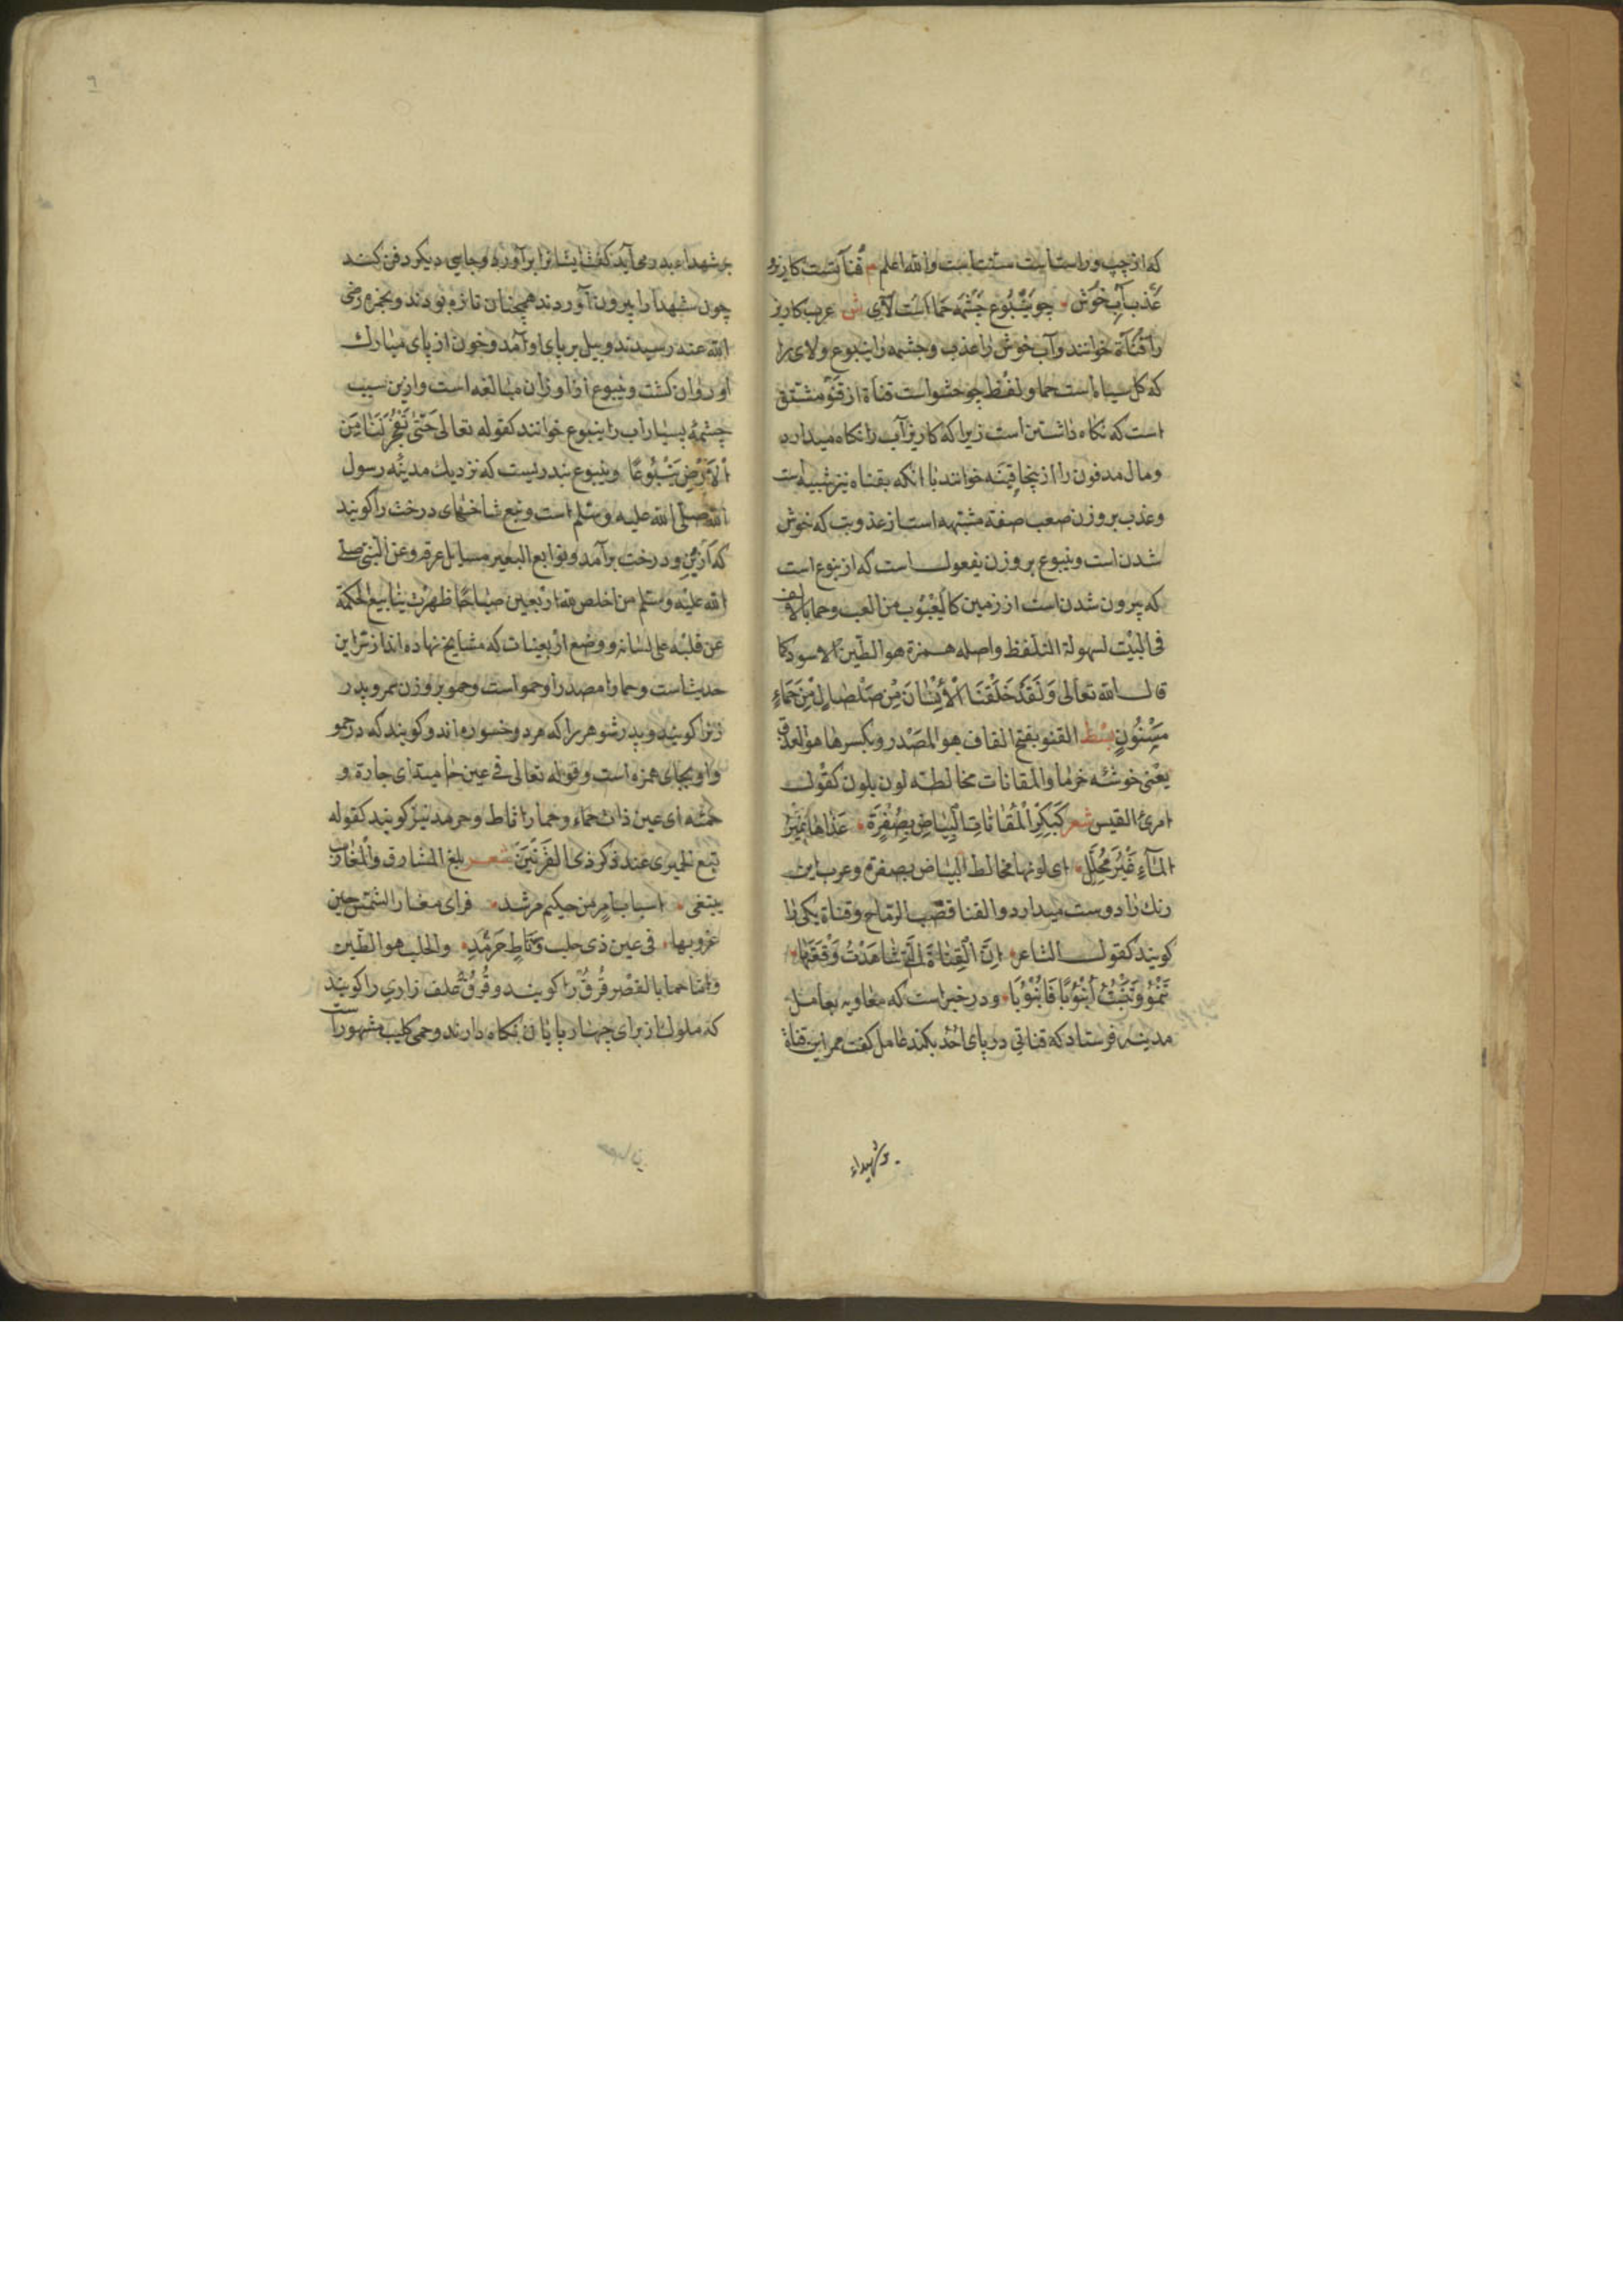 که از چپ و راست است سنت است والله اعلم م قنآتست کاریز و
عَذب آبِ خُوَش چو یَنْبُوع چَشْمَه حَمااست لَآی ش عرب کاریز
را قناة خوانند و آب خوش را عذب و چشمه را ینبوع و لای را
که کل سیاه است حما و لفظ چو حشو است قناة از قنو مشتق
است که نکاه داشتن است زیرا که کاریز آب را نکاه میدارد
و مال مدفون را از ینجا قِینَه خوانند با انکه بقناه نیز شبیه است
و عذب بر وزن صعب صفة مشتبهه است از عذوبت که خوش
شدن است و ینبوع بر وزن یفعول است که از نبوع است
که بیرون شدن است از زمین کالیَعْبُوب من العب و حما بالالف
فی البیت لسهولة التلفظ واصله همزة هو الطّین الاسود کما
قال الله تعالی وَلَقَدْ خَلَقْنَا الْأِنْسَانَ مِنْ صَلْصَالٍ مِنْ حَمَاءٍ
مَسْنُونٍ بسط القنو بفتح القاف هو المصْدر و بکسرها هو العذق
یعنی خوشه خرما والمقانات مخالطة لون بلون کقول
امرئ القیس شعر کَبِکْرِ الْمُقَانَاتِ الْبَیَاضِ بِصُفْرَةٍ غَذَاهَا نَمِیْرُ
الْمَآءِ غَیْرَ مُحَلَّلِ ای لونها مخالط البیاض بصفرة و عرب این
رنك را دوست میدارد والقنا قصب الرماح و قناة یکی را
کویند کقول الشاعر اِنَّ الْقِنَاةَ الَّتِي شَاهَدْتُ وَقْفَتَهَا
تَنْمُوْ وَتَنْبُتُ اُنْبُوْبًا فَاُنْبُوْبًا و در خبر است که معاویه بعامل
مدینه فرستاد که قناتی در پای احُد بکند عامل کفت ممر این قناة
بر شهداء
بر شهداء بدر می آید کفت ایشانرا برآورده و جایی دیکر دفن کنند
چون شهدا را بیرون آوردند همچنان تازه بودند و بحمزه رضی
الله عنه رسیدند و بیل بر پای او آمد و خون از پای مبارك
او روان کشت و ینبوع از اوزان مبالغه است و ازین سبب
چشمهٔ بسیار آب را ینبوع خوانند کقوله تعالی حَتّٰی تَفْجُرَ لَنَا مِنَ
الْاَرْضِ یَنْبُوْعًا و ینبوع بندریست که نزدیك مدینه رسول
الله صلی الله علیه وسلم است و نبع شاخهای درخت را کویند
که از بن درخت برآمد و نوابع البعیر مسایل عرقه و عن النبی صلی
الله علیه وسلم من اخلص لله اربعین صباحًا ظهرت ینابیع الحکمة
عن قلبه علی لسانه و وضع اربعینات که مشایخ نهاده اند از سر این
حدیث است و حما را مصدر او حمو است و حمو بر وزن عمرو پدر
زنرا کویند و پدر شوهر را که مرد و خسوره اند و کویند که در حمو
واو بجای همزه است و قوله تعالی فی عین حامیة ای حارة و
حمئه ای عین ذات حماء و حما را ثاط و حرمد نیز کویند کقوله
تبّع الحمیری عند ذکر ذی القرنین شعر بلغ المشارق والمغارب
یبتغی اسباب امر من حکیم مرشد فرای مغار الشمس حین
غروبها فی عین ذی خلب وثَاطٍ حَرْمَدِ والخلب هو الطّین
و امّا حما بالقصر قُرُقْ را کویند و قُرُقْ علف زاری را کویند
که ملوك از برای چهار پایان نکاه دارند و حمی کلیب مشهور است